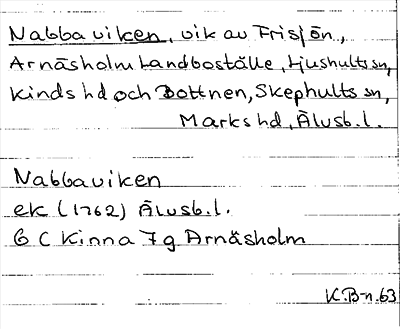 Nabbaviken, vik av Frisjön,
Arnäsholm Landboställe, Ljushults sn,
Kinds hd och Bottnen, Skephults sn,
Marks hd, Älvsb.l.
Nabbaviken
ek (1762) Älvsb.l.
6 C Kinna 7g Arnäsholm
K.B-n.63